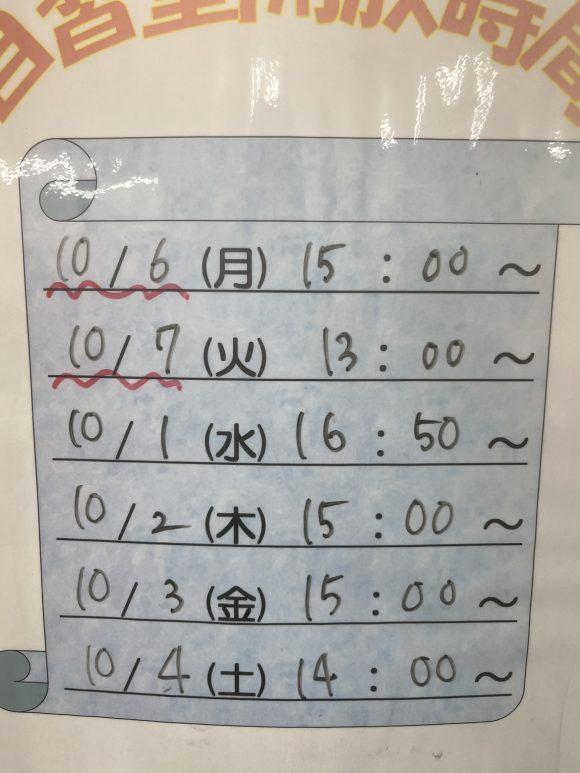 自習室開放時間
10/6 (月) 15:00~
10/7 (火) 13:00~
10/1 (水) 16:50~
10/2 (木) 15:00~
10/3 (金) 15:00~
10/4 (土) 14:00~